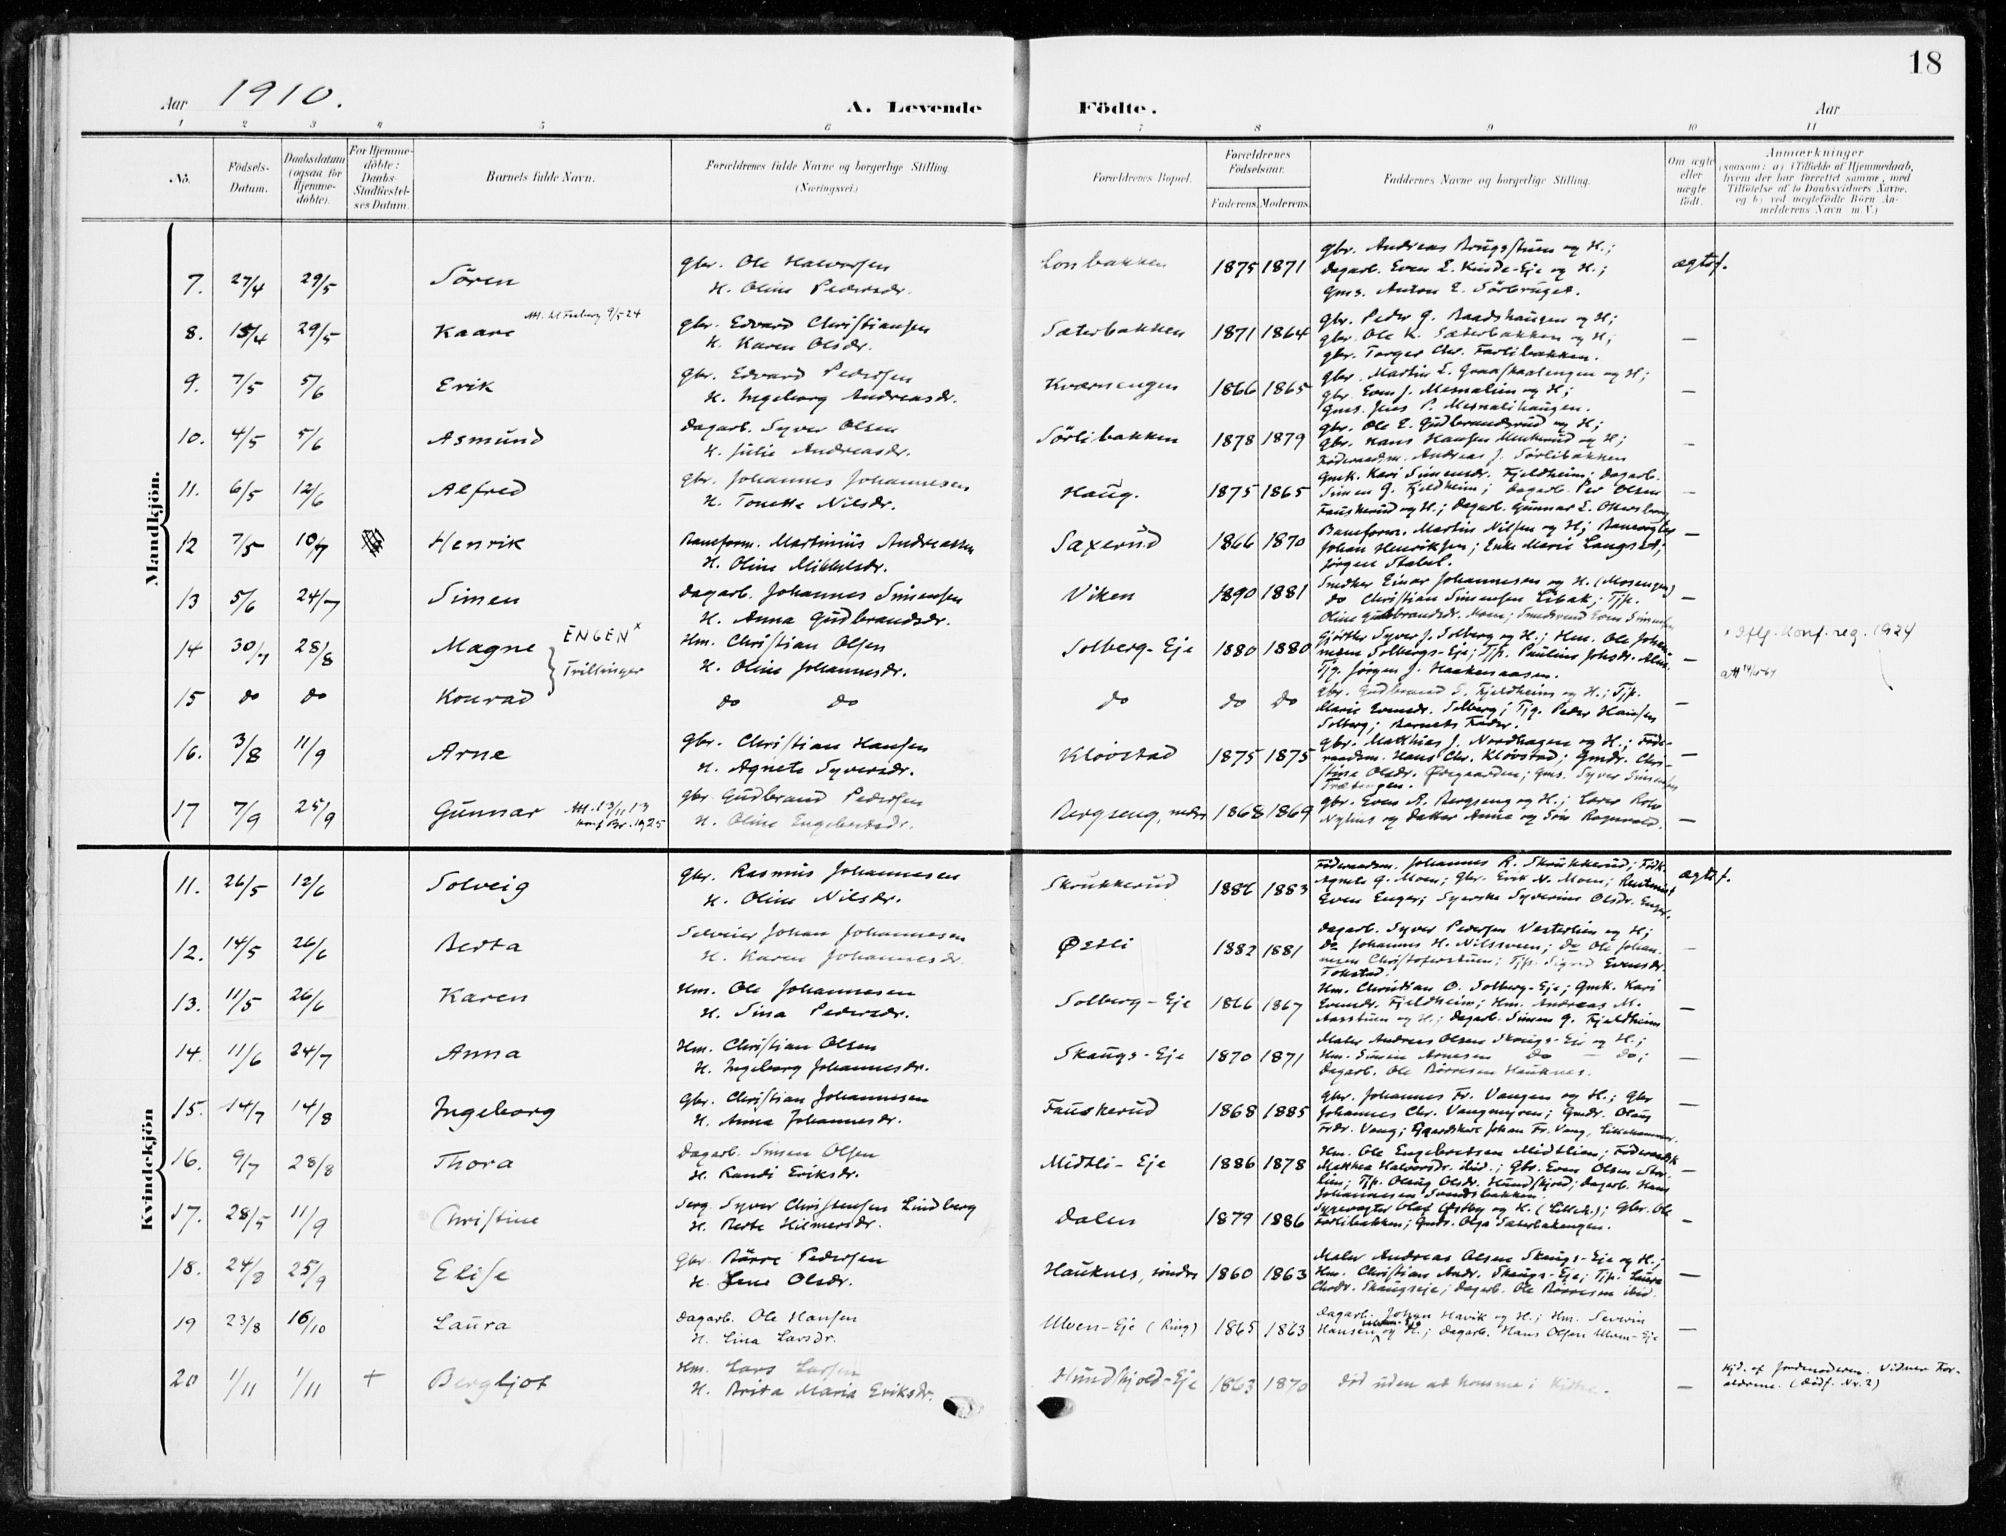 18
Aar 1910. A. Levende Födte. Aar
1 2 3 4 5 6 7 8 9 10 11
No. Födsels-Datum. Daabsdatum (ogsaa for Hjemme-döbte). For Hjemme-döbte: Daabs-Stadfæstel-ses Datum. Barnets fulde Navn. Forældrenes fulde Navne og borgerlige Stilling (Næringsvei.) Forældrenes Bopæl. Forældrenes Födselsaar. Faderens. Moderens. Faddernes Navne og borgerlige Stilling. Om ægte eller uægte födt. Anmærkninger
(saasom: a) i Tilfælde af Hjemmedaab,
hvem der har forrettet samme, med
Tilföielse af to Daabsvidners Navne,
og b) ved uægtefödte Börn An-
melderens Navn m. V.)
Mandkjön.
7. 27/4 29/5 Sören gbr. Ole Halvorsen
H. Oline Pedersdr. Lonbakken 1875 1871 gbr. Andreas Brugsstuen og H.;
Dagarb. Even E. Kinde-Eje og H.;
Gms. Anton E. Sörbruget. ægtef.
8. 15/4 29/5 Kaare 9/5 24 gbr. Edvard Christiansen
H. Karen Olsdr. Sæterbakken 1871 1864 gbr. Peder G. Baadshaugen og H;
gbr. Ole K. Sæterbakken og H;
gbr. Torger Chr. Farlibakken. —
9. 7/5 5/6 Erik gbr. Edvard Pedersen
H. Ingeborg Andreasdr. Kværnengen 1866 1865 gbr. Martin E. Graaskaalengen og H;
gbr. Even J. Mesnalien og H;
Gms. Jens P. Mesnalihaugen. —
10. 4/5 5/6 Asmund Dagarb. Syver Olsen
H. Julie Andreasdr. Sörlibakken 1878 1879 gbr. Ole E. Gudbrandsrud og H;
gbr. Hans Hansen Menkerud og H;
Föderaadsm. Andreas J. Sörlibakken —
11. 6/5 12/6 Alfred gbr. Johannes Johannesen
H. Tonette Nilsdr. Haug. 1875 1865 Gmk. Kari Simensdr. Fjeldheim; Dagarb.
Simen G. Fjeldheim; Dagarb. Per Olsen
Fauskerud og H.; Dagarb. Gunnar E. Ottersborg —
12 7/5 10/7 Henrik Baneform. Martinius Andreassen
H. Oline Mikkelsdr. Saxerud 1866 1870 Baneform. Martin Nilsen og H;
Johan Henriksen; Enke Marie Langset;
Jörgen Stabel. —
13 5/6 24/7 Simen Dagarb. Johannes Simensen
H. Anna Gudbrandsdr. Viken 1890 1881 Snedker Einar Johannesen og H. (Mosengen)
Do Christian Simensen Libak; Tjp.
Oline Gudbrandsdr. Moen; —
14 30/7 28/8 Magne ENGEN x Hm. Christian Olsen
H. Oline Johannesdr. Solberg-Eje 1880 1880 Gjörtler Syver J. Solberg og H.; Hm. Ole Johan-
nesen Solbergs-Eje; Tjp. Pauline Johsdr.
Tjg. Jörgen J. Haakenaasen. — x Iflg. Konf.reg. 1924
Trillinger
15 do do Konrad do do do do do gbr. Gudbrand S. Fjeldheim og H.; Tjp.
Marie Evensdr. Solberg; Tjg. Peder Hansen
Solberg; Barnets Fader. —
16. 3/8 11/9 Arne gbr. Christian Hansen
H. Agnete Syversdr. Klövstad 1875 1875 gbr. Matthias J. Nordhagen og H.; Föde-
raadsm. Hans Chr. Klövstad; Gmdr. Chri-
stine Olsdr. Ödegaarden; Gms. Syver Simensen
Træbergen. —
17 7/9 25/9 Gunnar Att. 13/11 13
Konf Br. 1925 gbr Gudbrand Pedersen
H. Oline Engebretsdr. Bergseng, nedre 1868 1869 gbr. Even A. Bergseng og H.; Lærer
Nyhus og Datter Anna og Sön Ragnvald. —
Kvindekjön
11. 26/5 12/6 Solveig gbr. Rasmus Johannesen
H. Oline Nilsdr. Skrukkerud 1886 1883 Föderaadsm. Johannes R. Skrukkerud; Födk.
Agnete G. Moen; gbr. Erik N. Moen;
Even Enger; Syerske Syverine Olsdr. Enger. ægtef.
12. 14/5 26/6 Berta Selveier Johan Johannesen
H. Karen Johannesdr. Östli 1882 1881 Dagarb. Syver Pedersen Vesterlien og H;
Do Johannes H. Nilssveen; Do Ole Johan-
nesen Christoferstuen; Tjp. Sigrid Evensdr.
Tokstad. —
13. 11/5 26/6 Karen Hm. Ole Johannesen
H. Sina Pedersdr. Solberg-Eje 1866 1867 Hm. Christian O. Solberg-Eje; Gmk. Kari
Evensdr. Fjeldheim; Hm. Andreas M.
Aasstuen og H.; Dagarb. Simen G. Fjeldheim —
14. 11/6 24/7 Anna Hm. Christian Olsen
H. Ingeborg Johannesdr. Skaugs-Eje 1870 1871 Maler Andreas Olsen Skaugs-Eje og H.;
Hm. Simen Arnesen Do — do;
Dagarb. Ole Börresen Hauknes. —
15. 14/7 14/8 Ingeborg gbr. Christian Johannesen
H. Anna Johannesdr. Fauskerud 1868 1885 gbr. Johannes Fr. Vangen og H.; gbr
Johannes Chr. Vangmyren; Gmdr. Olaug
Frdr. Vang; Gaardskar Johan Fr. Vang, Lillehammer. —
16. 9/7 28/8 Thora Dagarb. Simen Olsen
H. Randi Eriksdr. Midtli-Eje 1886 1878 Hm. Ole Engebretsen Midtlien; Föderaadsk
Mathea Halvorsdr. ibid.; gbr. Even Olsen Stor-
lien; Tjp. Olaug Olsdr. Hundskjold; Dagarb. Hans
Johannesen Svendsbakken. —
17. 28/5 11/9 Christine Serg. Syver Christensen Lindberg
H. Berte Hilmersdr. Dalen 1879 1886 Olaf Östby og H. (Lilleh.); gbr. Ole
Farlibakken; Gmdr. Olga Sæterbakengen. —
18. 24/8 25/9 Elise gbr. Börre Pedersen
H. Lene Olsdr. Hauknes, söndre 1860 1863 Maler Andreas Olsen Skaugs-Eje og H.;
Hm. Christian Andr. Skaugs-Eje; Tjp. Laura
Chrdr. Skaugseje; Dagarb. Ole Börresen ibid. —
19 23/8 16/10 Laura Dagarb. Ole Hansen
H. Lina Larsdr. Ulven-Eje (Ring) 1865 1863 Dagarb. Johan Havik og H.; Hm. Severin
Hansen og H.; Dagarb. Hans Olsen Ulven-Eje —
20 1/11 1/11 + Bergljot Hm. Lars Larsen
H. Brita Maria Eriksdr. Hundskjold-Eje 1863 1870 död uden at komme i Kirke. — Hjd. af Jordmoderen. Vidner For-
ældrene. (Dödf. Nr. 2)